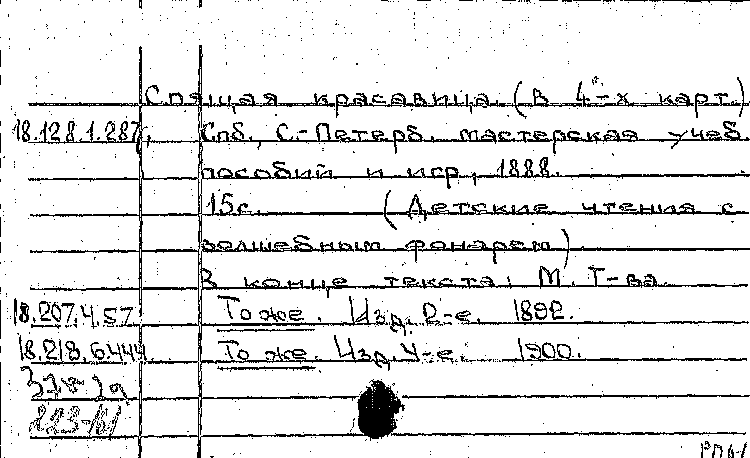 Спящая красавица. (В 4-х карт.)
18.128.1.287. Спб., С.-Петерб. мастерская учеб.
пособий и игр, 1888.
15с. (Детские чтения с
волшебным фонарем)
В конце текста: М. Т-ва.
18.207.4.57 То же. Изд. 2-е. 1892.
18.218.6.444 То же. Изд. 4-е. 1900.